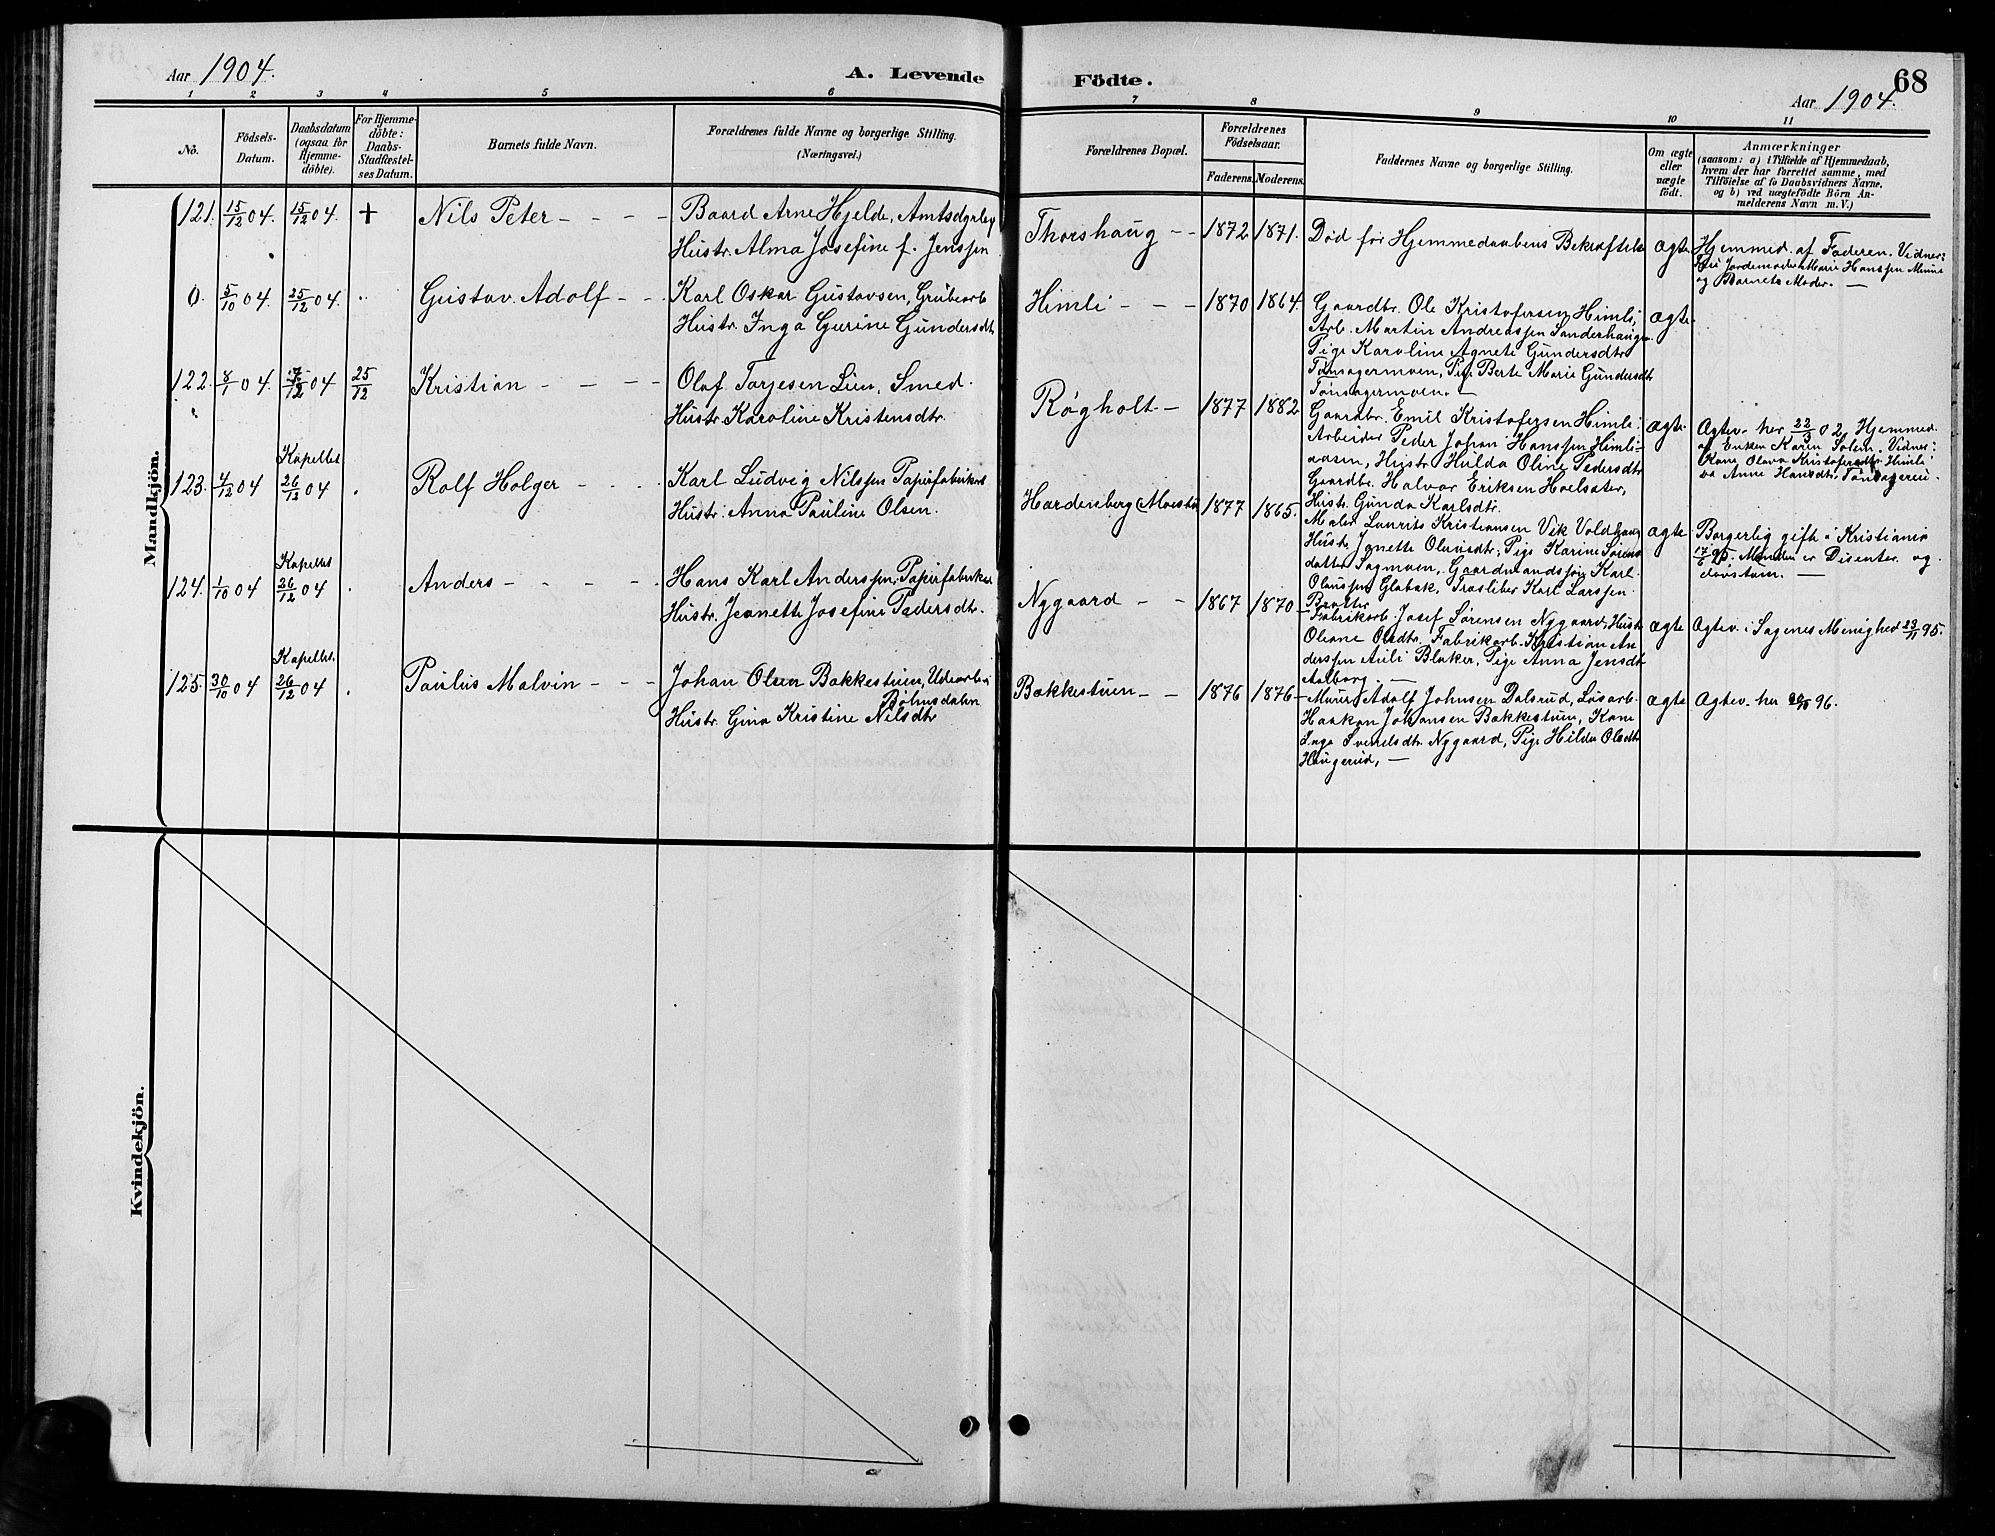 Aar 1904.
A. Levende
1 2 3 4 5 6
No.
Födsels-
Datum.
Daabsdatum
(ogsaa for
Hjemme-
döbte).
For Hjemme-
döbte:
Daabs-
Stadfæstel-
ses Datum.
Barnets fulde Navn.
Forældrenes fulde Navne og borgerlige Stilling.
(Næringsvei.)
Mandkjön.
121. 15/12 04. 15/12 04. + Nils Peter - - - - Baard Arne Hjelde, Amtsdyrlæg
Hustr. Alma Josefine f. Jenssen
0. 5/10 04. 25/12 04. Gustav Adolf - - Karl Oskar Gustavsen, Grubearb
Hustr. Inga Gurine Gundersdtr
122. 8/1 04. 04 25/12 Kristian - - - - Olaf Torjesen Lien, Smed.
Hustr. Karoline Kristensdtr.
Kapellet
123. 4/12 04 26/12 04 Rolf Holger - - - Karl Ludvig Nilssen Papirfabrikarb
Hustr. Anna Pauline Olsen.
Kapellet
124. 1/10 04 26/12 04 Anders - - - - Hans Karl Anderssen, Papirfabrikar
Hustr. Jeanette Josefine Pedersdtr.
Kapellet
125. 30/10 04 26/12 04 Paulus Malvin - - - Johan Olsen Bakkestuen, Udearb. i
Bøhnsdalen
Hustr. Gina Kristine Nilsdtr
Kvindekjön.
Födte.
68
Aar 1904.
7 8 9 10 11
Forældrenes Bopæl.
Forældrenes
Födselsaar.
Faderens. Moderens.
Faddernes Navne og borgerlige Stilling.
Om ægte
eller
uægte
født.
Anmærkninger
(saasom: a) i Tilfælde af Hjemmedaab,
hvem der har forrettet samme, med
Tilföielse af to Daabsvidners Navne.
og b) ved uægtefödte Börn An-
melderens Navn m. V.)
Thorshaug - - 1872 1871. Død før Hjemmedaabens Bekræftelse ægte Hjemmed. af Faderen. Vidner:
Jordemoder Marie Hanssen Minne
og Barnets Moder. —
Himli - - - 1870 1864. Gaardbr. Ole Kristofersen Himli, ægte
Arb. Martin Andreassen Sanderhaugen.
Pige Karoline Agnete Gundersdtr
Tønsagermoen, Pige Berte Marie Gundersdtr
Tønsagermoen. —
Røgholt - 1877 1882 Gaardbr. Emil Kristofersen Himli, ægte Ægtev. her 22/3 02 Hjemmed.
Arbeider Peder Johan Hanssen Himli-
aasen, Hustr. Hulda Oline Pedersdtr
Gaardbr. Halvor Eriksen Hoelsæter,
Hustr. Gunda Karlsdtr.
af Enken Karen Solem. Vidner:
Kone Olava Kristofersdtr Himli
og Anne Hansdtr. Tønsagerei.
Hardenberg (Moestu 1877 1865. Maler Laurits Kristiansen Vik Voldhaug ægte Borgerlig gift i Kristiania
Hustr. Jgnette Olausdtr, Pige Karine Sørens
datter Sagmoen, Gaardmandssøn Karl
Olaussen Glabak, Træsliber Karl Larssen
Bratter
17/6 95. Manden er Disenter og
—
Nygaard - - 1867 1870 Fabrikarb. Josef Sørensen Nygaard, Hustr ægte Ægtev. i Sagenes Menighed 23/11 95.
Oleane Olsdtr, Fabrikarb. Kristian An
derssen Auli Blaker, Pige Anna Jensdtr
Aalborg. —
Bakkestuen - - 1876 1876 Murer Adolf Johnsen Dalsrud, Løsarb. ægte Ægtev. her 96.
Haakon Johansen Bakkestuen, Kone
Inga Svendsdtr. Nygaard, Pige Hilda Olsdtr
Haugerud, —